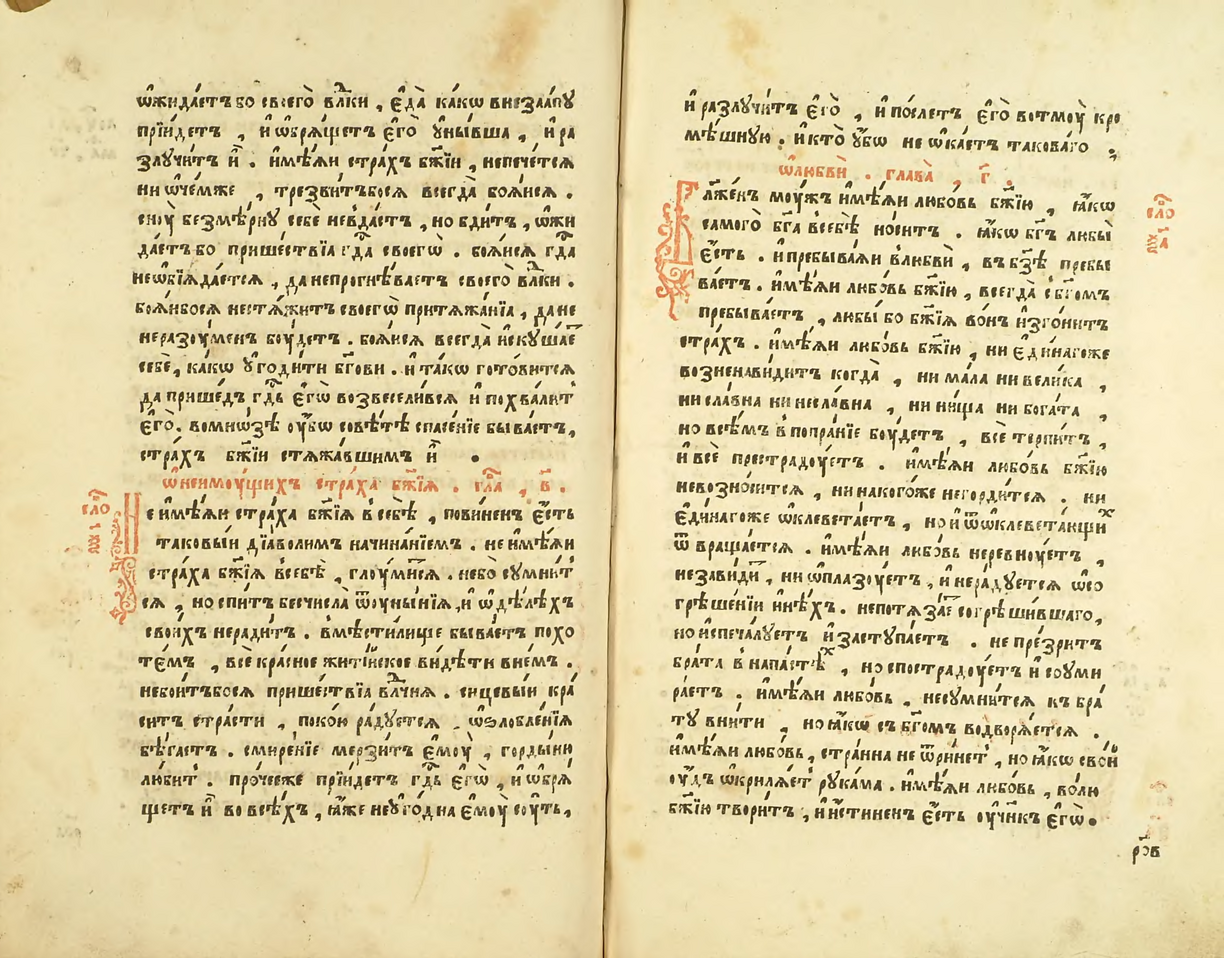 ѡ҆жида́етъ бо своегѡ̀ влⷣки , є҆да̀ ка́кѡ внеза́апꙋ
прїи́детъ , и҆ ѡ҆брѧ́щетъ є҆го̀ ᲂу҆ны́вша , и҆ ра
злꙋчи́тъ и҆̀ . и҆мѣ́ѧи стра́хъ бж҃їи , непече́тсѧ
ни ѡ҆ че́мже , трезви́тъбосѧ всегда̀ боѧ́исѧ .
сноу̀ безмѣ́рнꙋ себѐ невда́стъ , но бди́тъ , ѡ҆жи
да́етъ бо прише́ствїа гдⷭ҇а своегѡ̀ . боѧ́исѧ гдⷭ҇а
не ѡ҆бїѧда́етсѧ , да непрогнѣ́ваетъ своего̀ влⷣки .
боѧ́ибосѧ нестѧ́житъ своегѡ̀ притѧжа́нїа , да не
неразоу́менъ боу́детъ . боѧ́исѧ всегда̀ и҆скꙋша́е
себѐ , ка́кѡ ᲂу҆годи́ти бг҃ови . и та́кѡ гото́витсѧ
да прише́дъ гдⷭ҇ь є҆гѡ̀ возвесели́всѧ и҆ похва́лит
є҆го̀ . вомно́зѣ оу҆́бѡ совѣ́тѣ спасе́нїе быва́етъ ,
стра́хъ бж҃їи стѧжа́вшимъ и҆̀ .
ѡ҆ неимоу́щихъ стра́ха бж҃їѧ . гла́ , в҃ .
сло
Не и҆мѣ́ѧи стра́ха бж҃їѧ в себѣ̀ , пови́ненъ є҆́сть
таковы́и дїа́волимъ начина́нїемъ . не и҆мѣ́ѧи
стра́ха бж҃їѧ всебѣ̀ , глоу́митсѧ . небо соумни́т
сѧ , но спи́тъ бесчисла̀ ѿ оу҆ны́нїѧ , и ѡ҆ дѣ́лѣхъ
свои́хъ неради́тъ . вмѣсти́лище быва́етъ похо
те́мъ , всѐ кра́сное жите́йское ви́дѣти вне́мъ .
небои́тъбосѧ прише́ствїа влⷣчнѧ . сицевы́и кра
си́тъ стра́сти , поко́ю ра́дꙋетсѧ , ѡ҆ѕлобле́нїѧ
бѣ́гаетъ . смире́нїе мерзи́тъ є҆моу̀ , горды́ни
лю́бит . про́чееже прїи́детъ гдⷭ҇ь є҆гѡ̀ , и҆ ѡ҆брѧ́
щетъ и҆̀ во всѣ́хъ , ꙗ҆́же неꙋго́дна є҆моу̀ соу́ть ,
и҆ разлꙋчи́тъ є҆го̀ , и҆ по́слетъ є҆го̀ вотмоу̀ кро
мѣ́шнꙋю . и҆ кто̀ ᲂу҆́бѡ не ѡ҆ка́етъ такова́го .
ѡ҆ любвѝ . глава̀ , г҃ .
сло
Бл҃же́нъ моу́жъ и҆мѣ́ѧи любо́вь бж҃їю , ꙗ҆́кѡ
самого̀ бг҃а всебѣ̀ но́ситъ . ꙗ҆́кѡ бг҃ъ любы̀
є҆́сть . и҆ пребыва́ѧи влюбвѝ , въ бз҃ѣ пребы
ва́етъ . и҆мѣ́ѧи любо́вь бж҃їю , всегда̀ с бг҃омъ
пребыва́етъ , любы̀ бо бж҃їѧ во́нъ и҆зго́нитъ
стра́хъ . и҆мѣ́ѧи любо́вь бж҃їю , ни є҆ди́нагоже
возненави́дитъ когда̀ , ни ма́ла ни вели́ка ,
ни сла́вна ни несла́вна , ни ни́ща ни бога́та ,
но всѣ́мъ в попра́нїе боу́детъ , всѐ терпи́тъ ,
и҆ всѐ престрадоу́етъ . и҆мѣ́ѧи любо́вь бж҃їю
невозно́ситсѧ , ни на кого́же негорди́тсѧ . ни
є҆ди́нагоже ѡ҆клевета́етъ , но и҆ ѿ ѡ҆клевета́ющиⷯ
ѿвраща́етсѧ . и҆мѣ́ѧи любо́вь неревноу́етъ ,
незави́ди , ни ѡ҆плазоу́етъ , и҆ нера́дꙋетсѧ ѡ҆ со
грѣше́нїи и҆нѣ́хъ . непотѧза́е согрѣши́вшаго ,
но и҆спеча́лꙋетъ и҆ застꙋпа́етъ . не пре́зритъ
бра́та в напа́стѣⷯ , но спострадоу́етъ и҆ соуми
ра́етъ . и҆мѣ́ѧи любо́вь , несꙋмни́тсѧ къ бра
тꙋ̀ вни́ти , но ꙗ҆́кѡ съ бг҃омъ водворѧ́етсѧ .
и҆мѣ́ѧи любо́вь , стра́нна не ѿри́нет , но ꙗ҆́кѡ свои
оу҆́дъ ѡ҆крилѧ́ет рꙋка́ма . и҆мѣ́ѧи любо́вь , во́лю
бж҃їю твори́тъ , и҆ и҆́стиненъ є҆́сть оу҆чн҃къ є҆гѡ̀ .
ро҃в